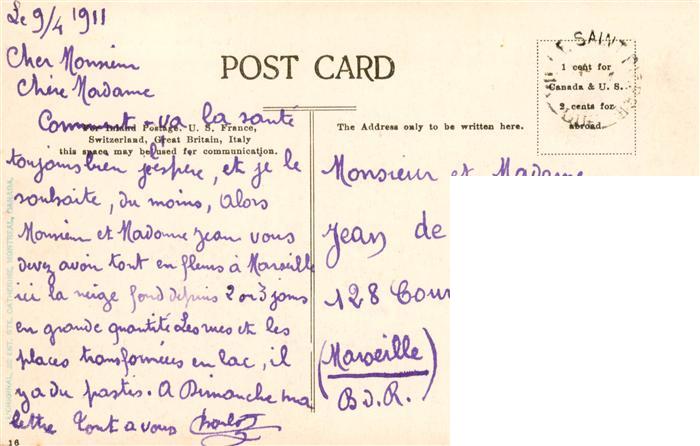 Le 9/4 1911
Cher Monsieur
Chère Madame
Comment-va la santé
toujours bien j'espère, et je le
souhaite, du moins, Alors
Monsieur et Madame Jean vous
devez avoir tout en fleurs à Marseille
ici la neige fond depuis 2 ou 3 jours
en grande quantité Les rues et les
places transformées en lac, il
y a du pastis. A Dimanche ma
lettre Tout a vous
POST CARD
For Inland Postage, U. S. France,
Switzerland, Great Britain, Italy
this space may be used for communication.
The Address only to be written here.
SAIN
1 cent for
Canada & U. S.
2 cents for
abroad.
Monsieur et Madame
Jean de
128 Cour
(Marseille)
B.d.R.
EST, STE. CATHERINE, MONTREAL, CANADA.
16